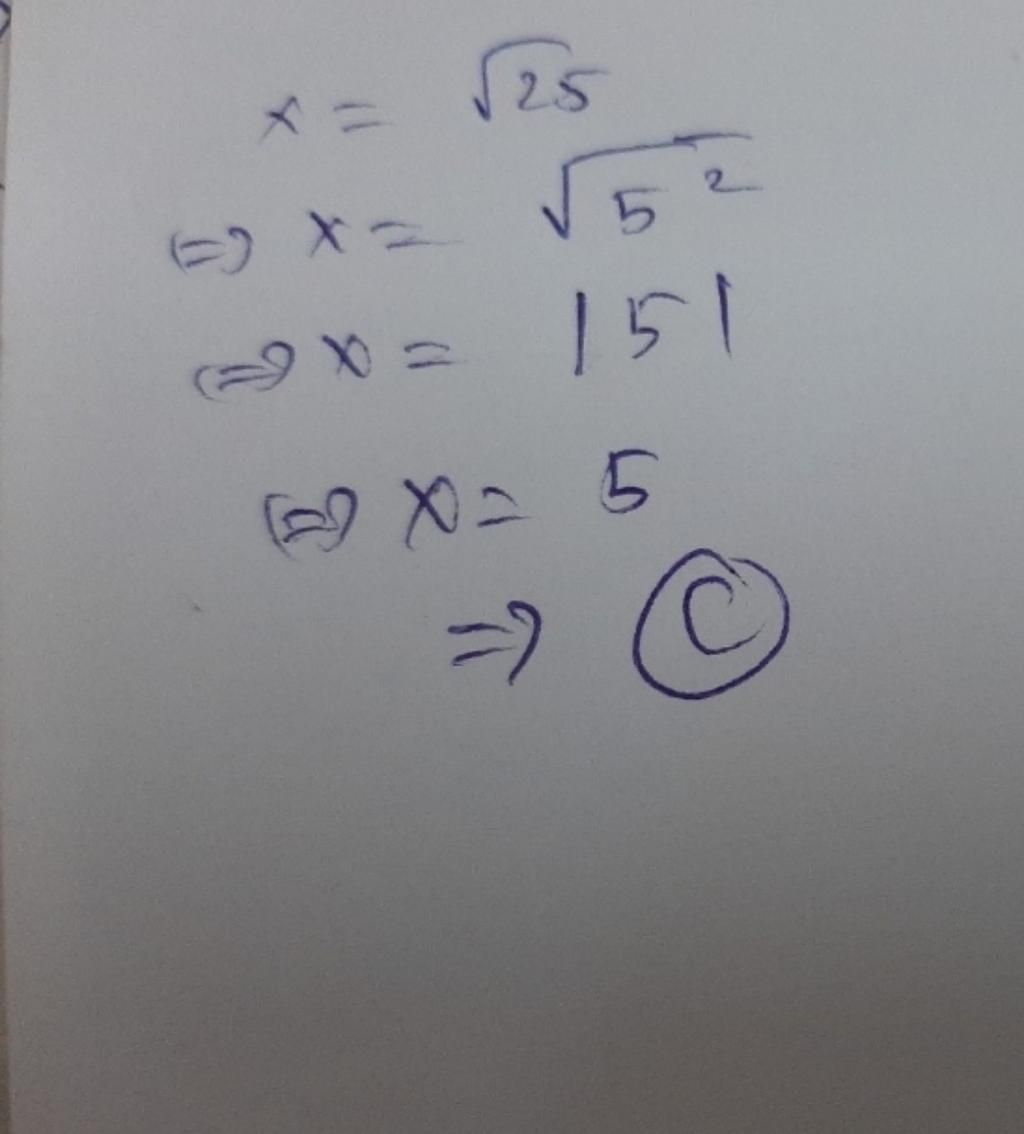 x = √25
⇒ x = √5²
⇒ x = |5|
⇒ x = 5
⇒ C